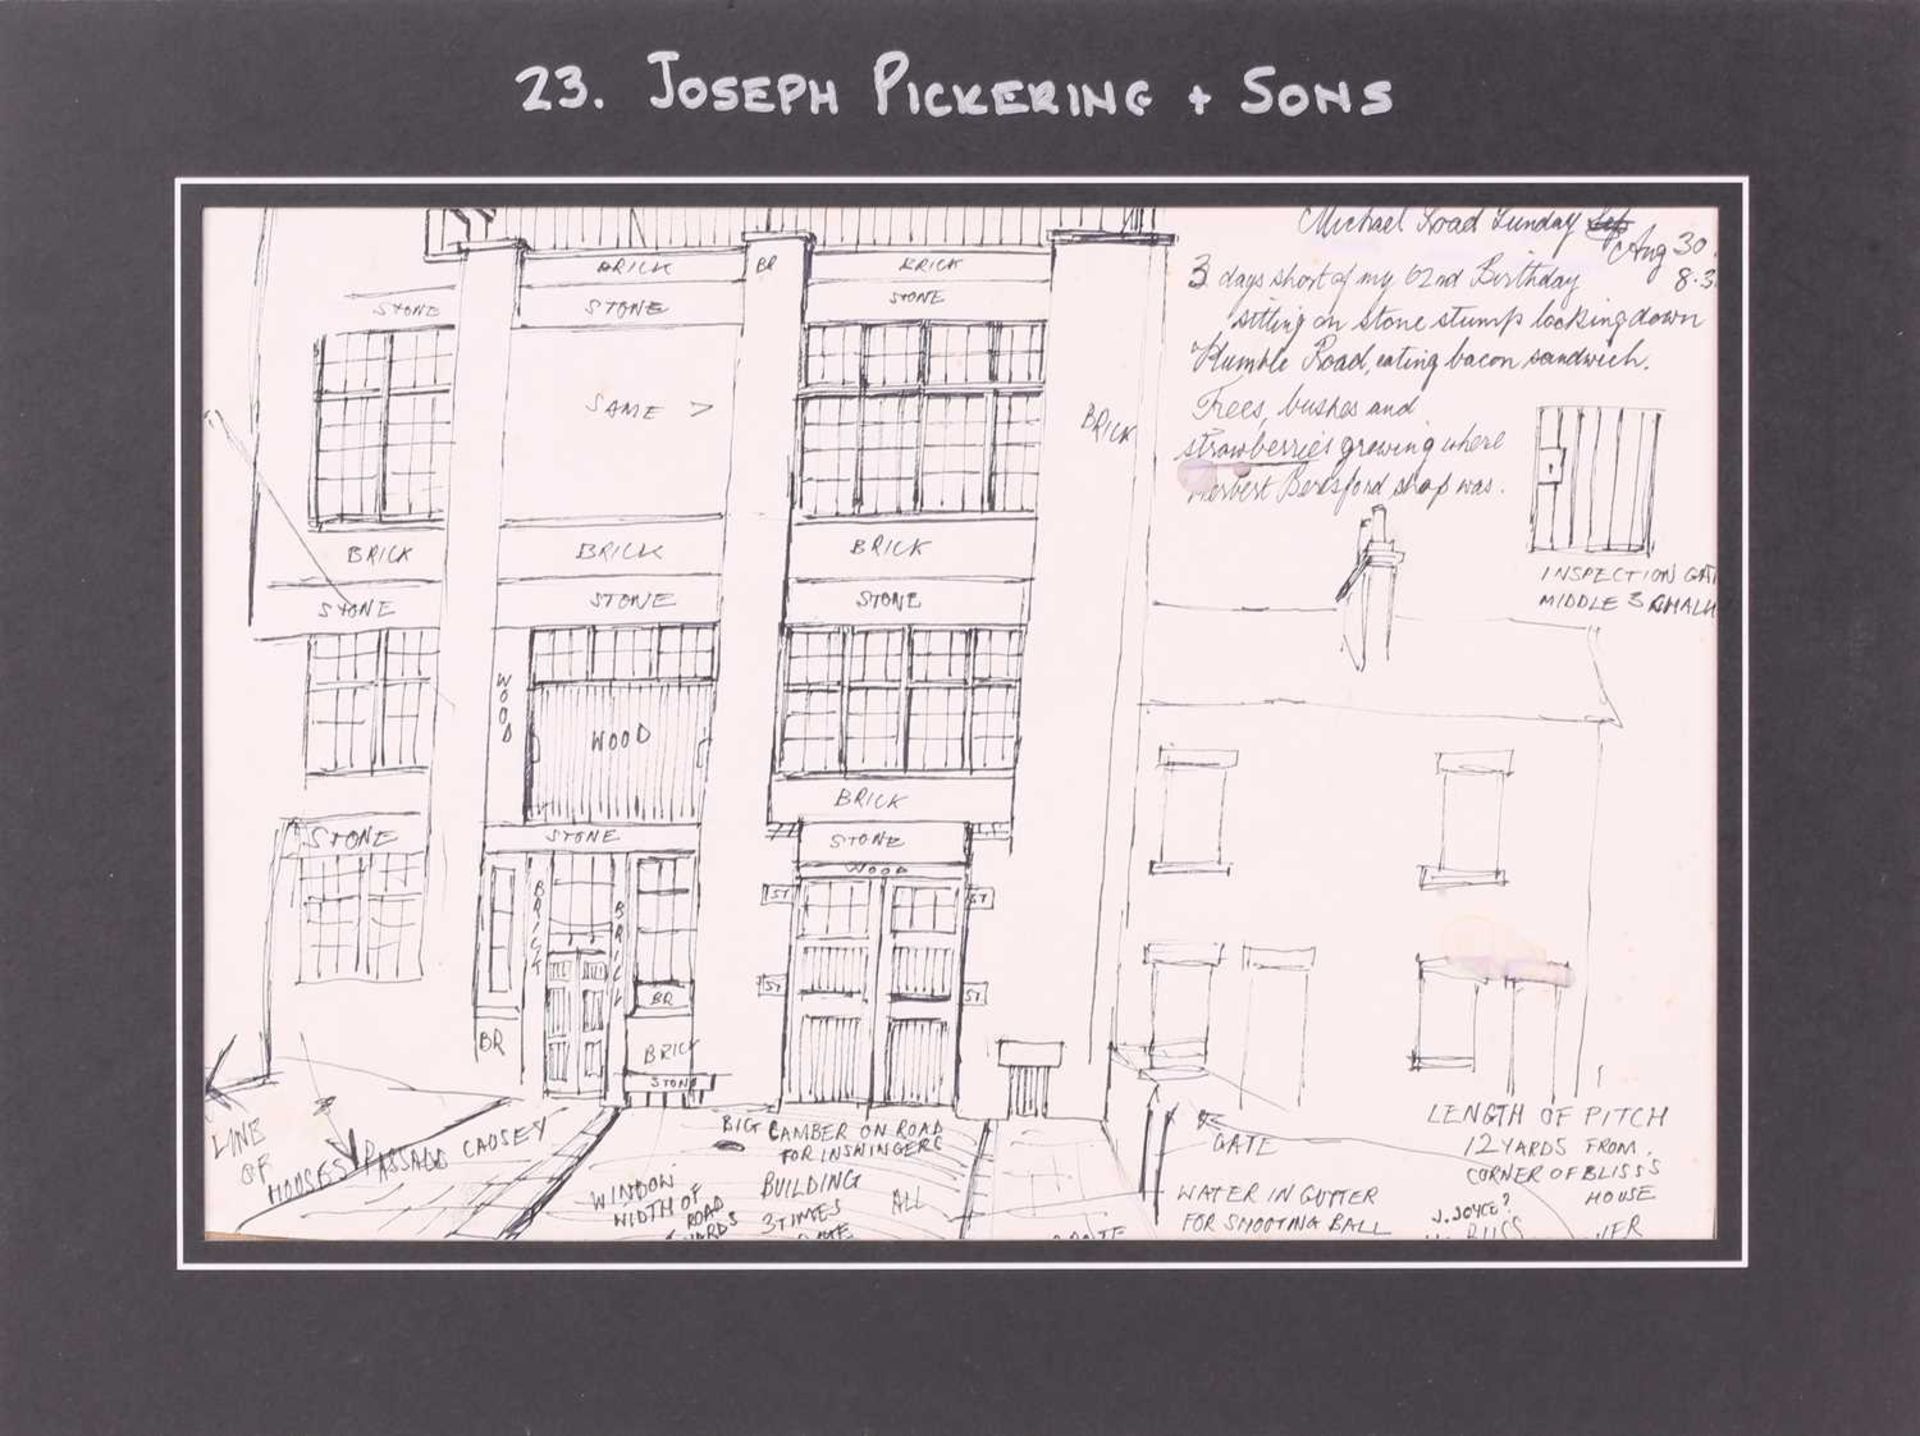 23. JOSEPH PICKERING + SONS
Michael Road Sunday
Aug 30
8.3
3 days short of my 62nd Birthday
sitting on stone stump looking down
Plumble Road, eating bacon sandwich.
Trees, bushes and
strawberries growing where
Herbert Beresford shop was.
INSPECTION GAT
MIDDLE 3
BRICK
BR
BRICK
STONE
STONE
STONE
SAME >
BRICK
BRICK
BRICK
BRICK
STONE
STONE
STONE
WOOD
WOOD
BRICK
STONE
STONE
STONE
WOOD
BRICK
BRICK
ST
ST
ST
ST
BR
BR
BRICK
STONE
LINE
OF
HOUSES
CAUSEY
BIG CAMBER ON ROAD
FOR INSWINGERS
WINDOW
WIDTH OF
ROAD
BUILDING
3 TIMES
ALL
GATE
WATER IN GUTTER
FOR SMOOTING BALL
LENGTH OF PITCH
12 YARDS FROM
CORNER OF BLISS'S
HOUSE
J. JOYCE?
BLISS